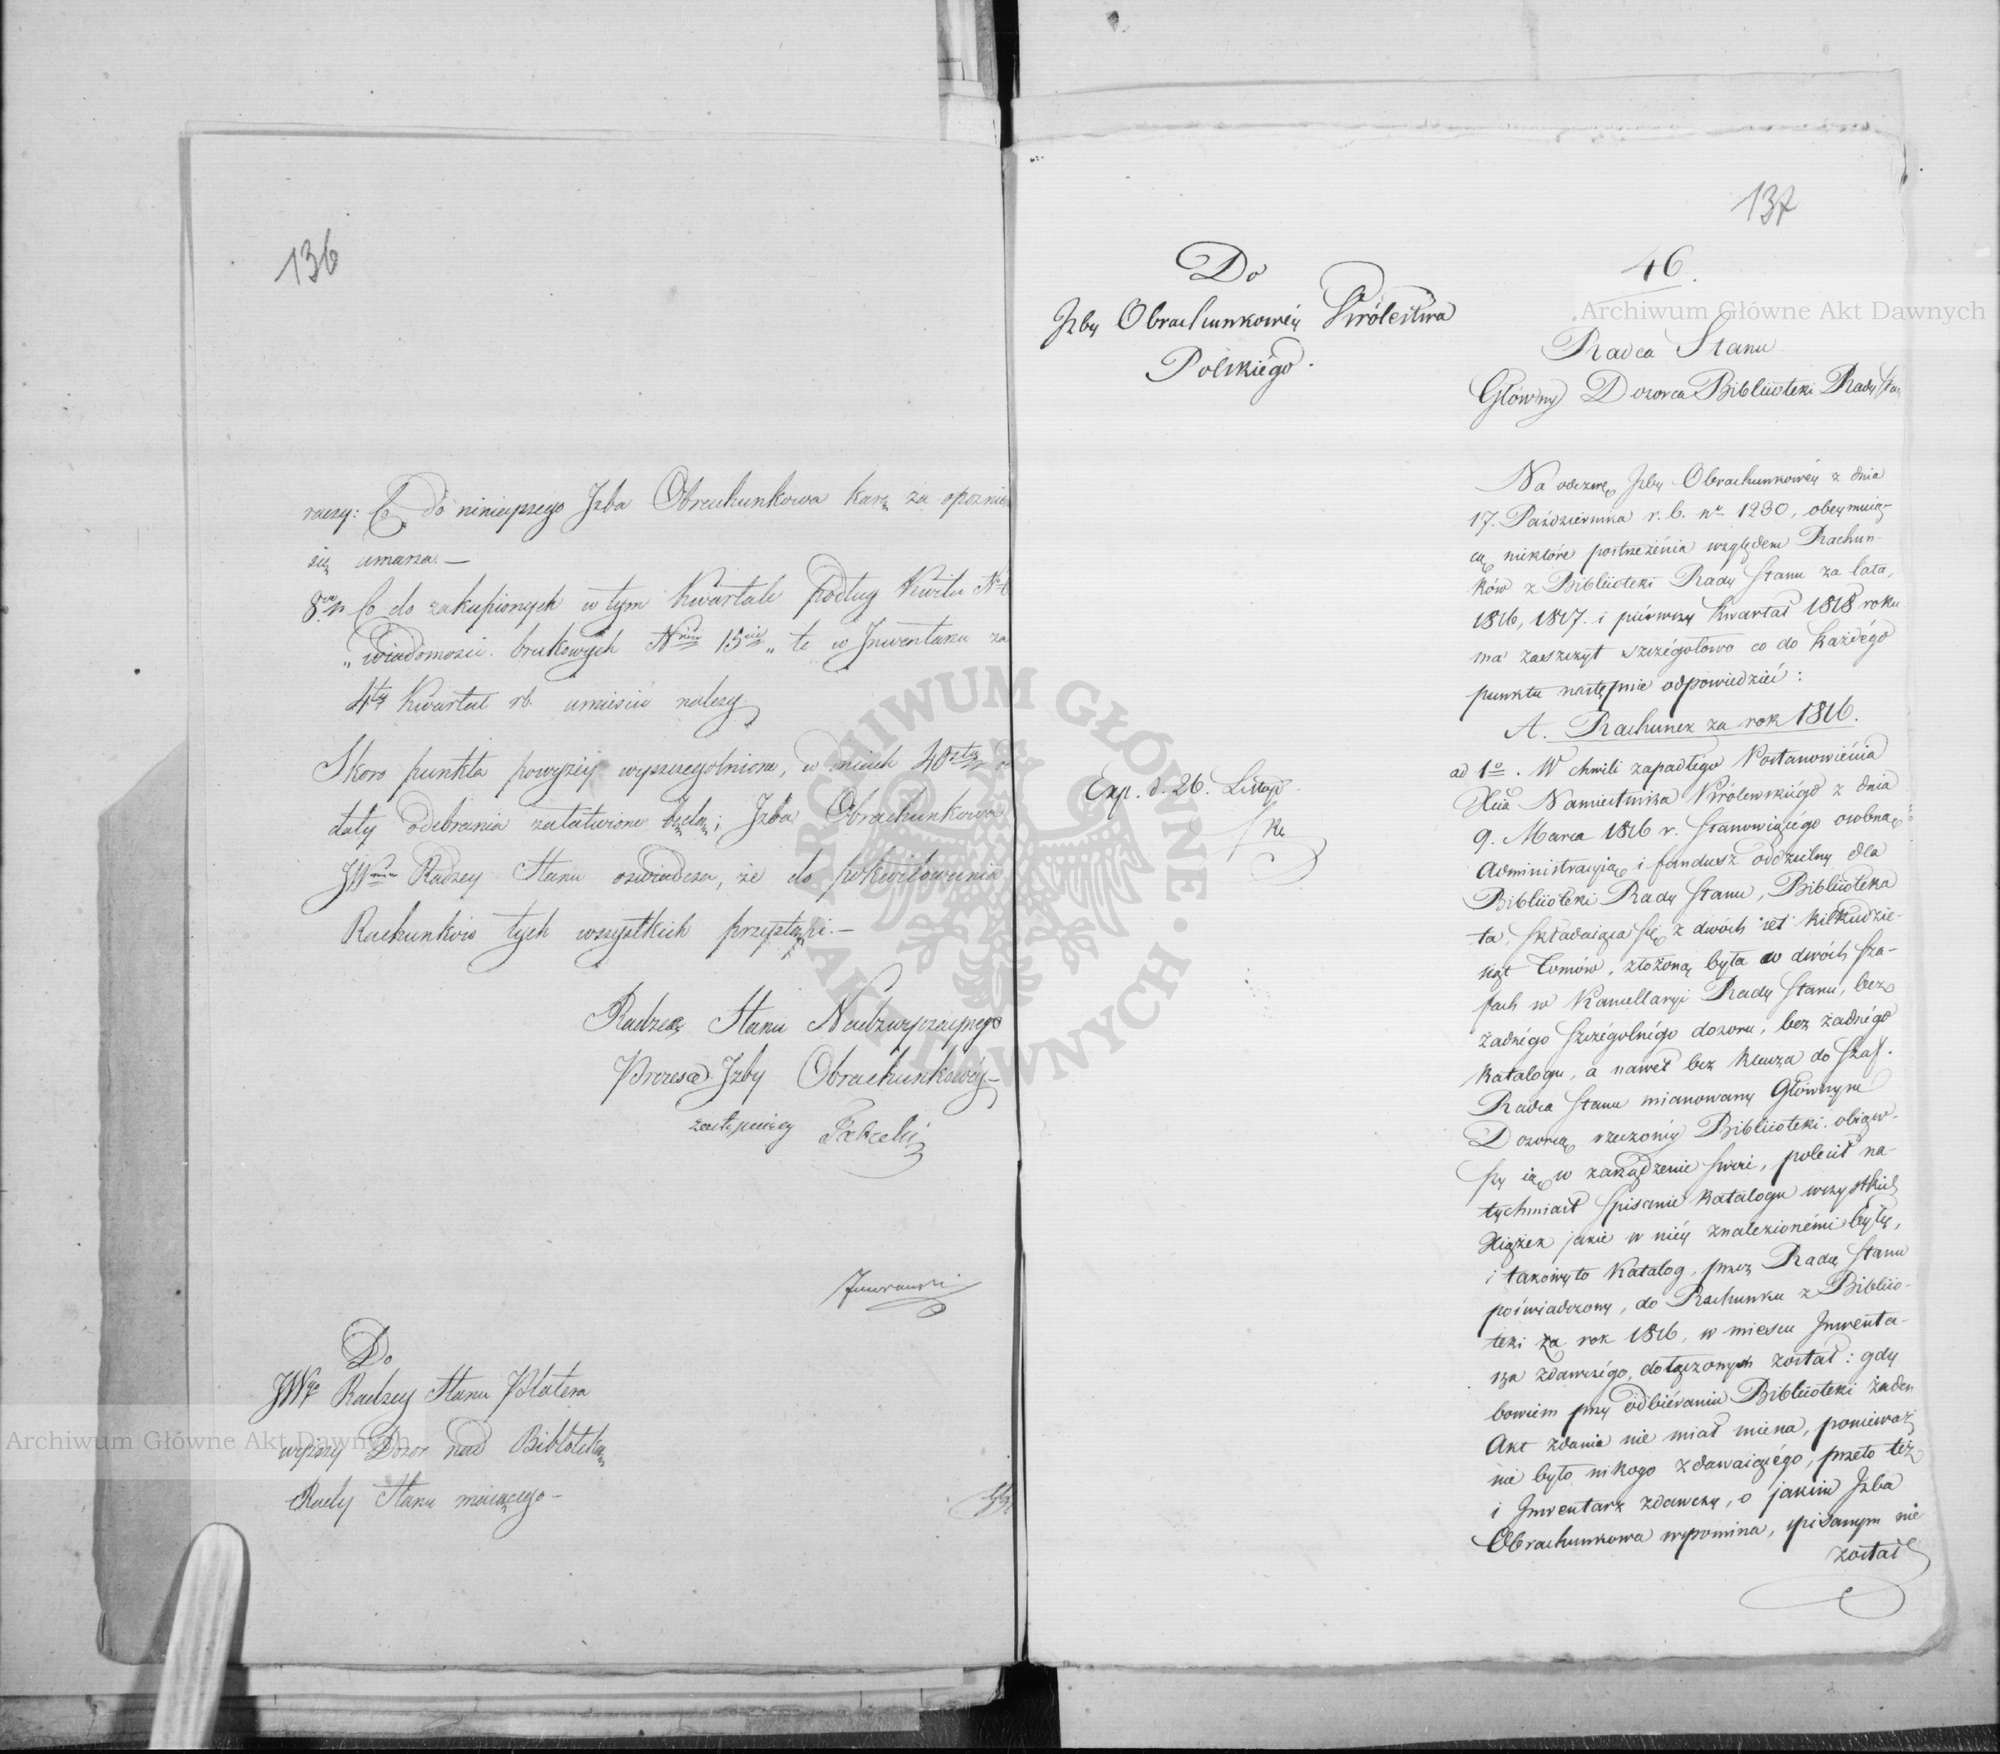 136
raczy: Co do ninieyszego Izba Obrachunkowa karę za opoznie
się umarza. —
8vo Co do zakupionych w tym Kwartale podług Kwitu No 6
„ wiadomosci brukowych Nrów 15cie „ te w Inwentarzu za
4ty Kwartał rb. umieścić należy
Skoro punkta powyżey wyszczególnione, w dniach 40stu od
daty odebrania załatwione będą; Izba Obrachunkowa
JWmu Radzcy Stanu oswiadcza, że do pokwitowania
Rachunków tych wszystkich przystąpi. —
Radzca Stanu Nadzwyczaynego
Prezesa Izby Obrachunkowéy —
zastępuiący
Do
JWgo Radzcy Stanu Platera
wyższy Dozor nad Biblioteką
Rady Stanu maiącego —
137
46.
Do
Izby Obrachunkowéy Królestwa
Polskiégo.
Radca Stanu
Główny Dozorca Biblijoteki Rady Stanu
Exp. d. 26. Listop
Na odezwę Izby Obrachunkowéy z dnia
17. Października r. b. nr 1230, obeymuią-
cą niektóre postrzeżénia względem Rachun-
ków z Biblijoteki Rady Stanu za lata,
1816, 1817. i piérwszy kwartał 1818 roku
ma zaszczyt szczégółowo co do każdégo
punktu następnie odpowiedzieć:
A. Rachunek za rok 1816.
ad 1o. W chwili zapadłégo Postanowiénia
Xcia Namiestnika Królewskiégo z dnia
9. Marca 1816 r. stanowiącégo osobną
Administracyią i fundusz oddzielny dla
Biblijoteki Rady Stanu, Biblijoteka
ta, składaiąca się z dwóch set kilkudzie-
siąt tomów, złożoną była w dwóch sza-
fach w Kancellaryi Rady Stanu, bez
żadnégo szczégólnégo dozoru, bez żadnégo
katalogu, a nawet bez klucza do szaf.
Radca Stanu mianowany Głównym
Dozorcą rzeczonéy Biblijoteki, obiąw-
szy ią w zarządzenie swoie, polecił na-
tychmiast spisanie katalogu wszystkich
Xiążek jakie w niéy znalezionémi były,
i takowyto Katalog, przez Radę Stanu
poświadczony, do Rachunku z Biblijo-
teki za rok 1816, w miescu Inwenta-
rza zdawczégo, dołączonym został: gdy
bowiem przy odbiéraniu Biblijoteki żaden
Akt zdania nie miał mieysca, ponieważ
nie było nikogo zdawaiącégo, przeto też
i Inwentarz zdawczy, o jakim Izba
Obrachunkowa wspomina, spisanym nie
został
Archiwum Główne Akt Dawnych
Archiwum Główne Akt Dawnych
ARCHIWUM GŁÓWNE · AKT DAWNYCH ·